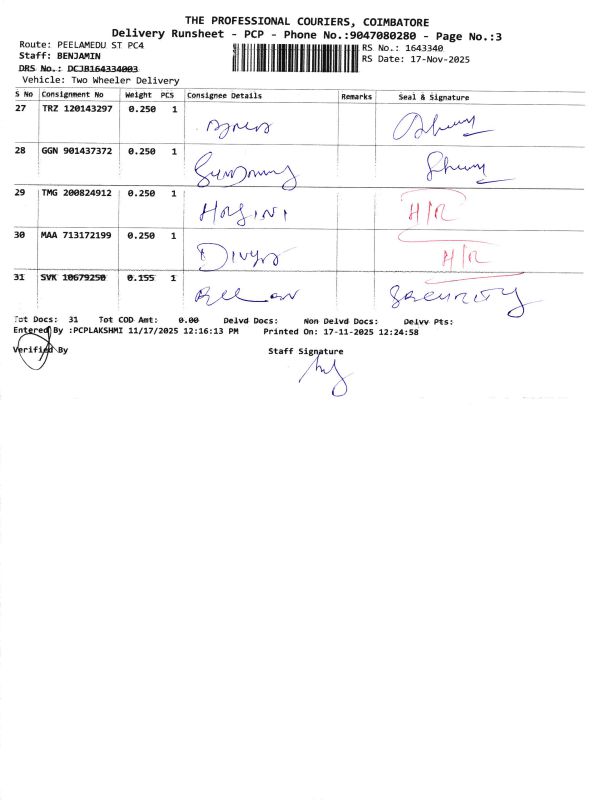 THE PROFESSIONAL COURIERS, COIMBATORE
Delivery Runsheet - PCP - Phone No.:9047080280 - Page No.:3
Route: PEELAMEDU ST PC4 RS No.: 1643340
Staff: BENJAMIN RS Date: 17-Nov-2025
DRS No.: DCJB164334003
Vehicle: Two Wheeler Delivery
S No Consignment No Weight PCS Consignee Details Remarks Seal & Signature
27 TRZ 120143297 0.250 1
28 GGN 901437372 0.250 1
29 TMG 200824912 0.250 1 H/R
30 MAA 713172199 0.250 1 Divya H/R
31 SVK 10679250 0.155 1 Security
Tot Docs: 31 Tot COD Amt: 0.00 Delvd Docs: Non Delvd Docs: Delvv Pts:
Entered By :PCPLAKSHMI 11/17/2025 12:16:13 PM Printed On: 17-11-2025 12:24:58
Verified By Staff Signature